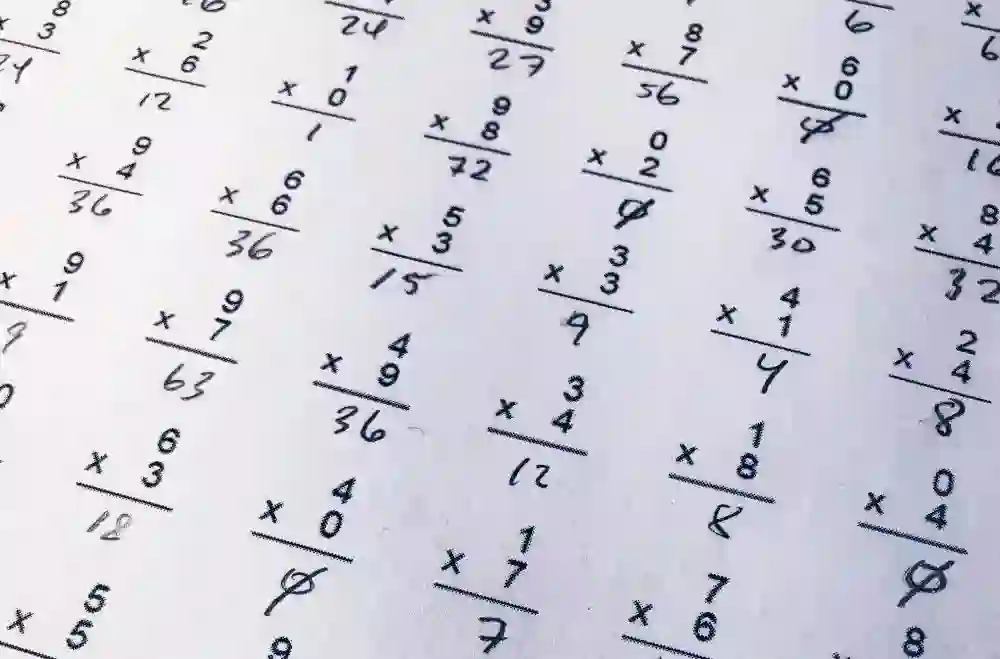 6
x
6
24
x 9
27
8
x 7
56
6
x 0
0
x
16
8
x 3
24
2
x 6
12
1
x 0
1
9
x 8
72
0
x 2
0
6
x 5
30
8
x 4
32
9
x 4
36
6
x 6
36
5
x 3
15
3
x 3
9
4
x 1
4
2
x 4
8
9
x 1
9
9
x 7
63
4
x 9
36
3
x 4
12
1
x 8
8
0
x 4
0
6
x 3
18
4
x 0
0
1
x 7
7
7
x 6
8
5
x 5
9